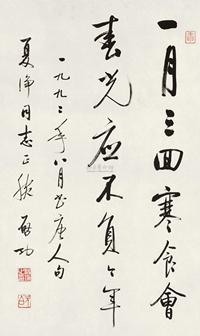 一月三回寒食會
春光应不負今年
一九九二年八月书唐人句
同志正腕 启功